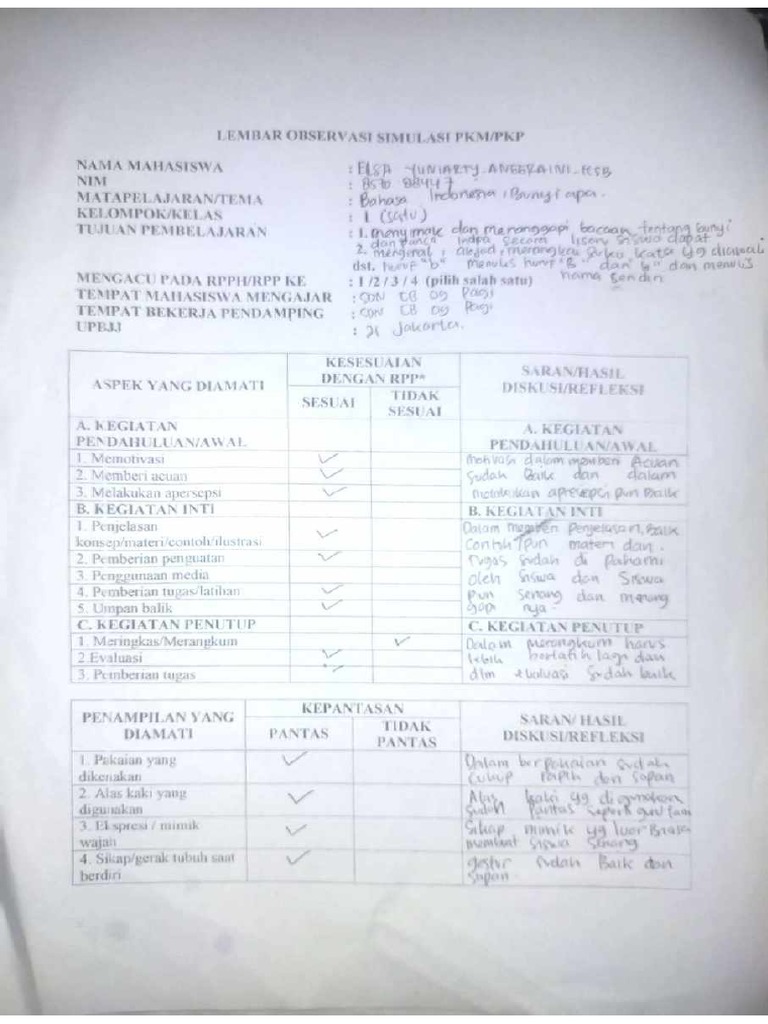 LEMBAR OBSERVASI SIMULASI PKM/PKP
NAMA MAHASISWA : ELSA YUNIARTY ANGGRAINI
NIM : 8570 88447
MATAPELAJARAN/TEMA : Bahasa Indonesia / Bunyi apa.
KELOMPOK/KELAS : 1 (satu)
TUJUAN PEMBELAJARAN : 1. menyimak dan menanggapi bacaan tentang bunyi
dan panca indra secara lisan siswa dapat
2. mengenal, suku kata yg diawali
dst. huruf "b" menulis huruf "B" dan "b" dan menulis
nama sendiri
MENGACU PADA RPPH/RPP KE : 1 / 2 / 3 / 4 (pilih salah satu)
TEMPAT MAHASISWA MENGAJAR : SDN CB 09 Pagi
TEMPAT BEKERJA PENDAMPING : SDN CB 09 Pagi
UPBJJ : 21 Jakarta.
ASPEK YANG DIAMATI
KESESUAIAN
DENGAN RPP*
SESUAI
TIDAK
SESUAI
SARAN/HASIL
DISKUSI/REFLEKSI
A. KEGIATAN
PENDAHULUAN/AWAL
A. KEGIATAN
PENDAHULUAN/AWAL
1. Memotivasi ✓
2. Memberi acuan ✓
3. Melakukan apersepsi ✓
Motivasi dalam memberi Acuan
sudah Baik dan dalam
melakukan apresepsi pun Baik
B. KEGIATAN INTI
B. KEGIATAN INTI
1. Penjelasan
konsep/materi/contoh/ilustrasi ✓
2. Pemberian penguatan ✓
3. Penggunaan media
4. Pemberian tugas/latihan ✓
5. Umpan balik ✓
Dalam Penjelasan, Baik
Contoh pun materi dan
Tugas sudah di pahami
oleh siswa dan Siswa
pun senang dan menang
gapi nya.
C. KEGIATAN PENUTUP
C. KEGIATAN PENUTUP
1. Meringkas/Merangkum ✓
2.Evaluasi ✓
3. Pemberian tugas ✓
Dalam merangkum harus
lebih berlatih lagi dan
dlm evaluasi sudah baik
PENAMPILAN YANG
DIAMATI
KEPANTASAN
PANTAS
TIDAK
PANTAS
SARAN/ HASIL
DISKUSI/REFLEKSI
1. Pakaian yang
dikenakan ✓
Dalam berpakaian sudah
cukup Rapih dan sopan
2. Alas kaki yang
digunakan ✓
Alas kaki yg digunakan
sudah pantas seperti guru lain
3. Ekspresi / mimik
wajah ✓
Sikap mimik yg luar Biasa
membuat siswa senang
4. Sikap/gerak tubuh saat
berdiri ✓
gestur sudah Baik dan
sopan.